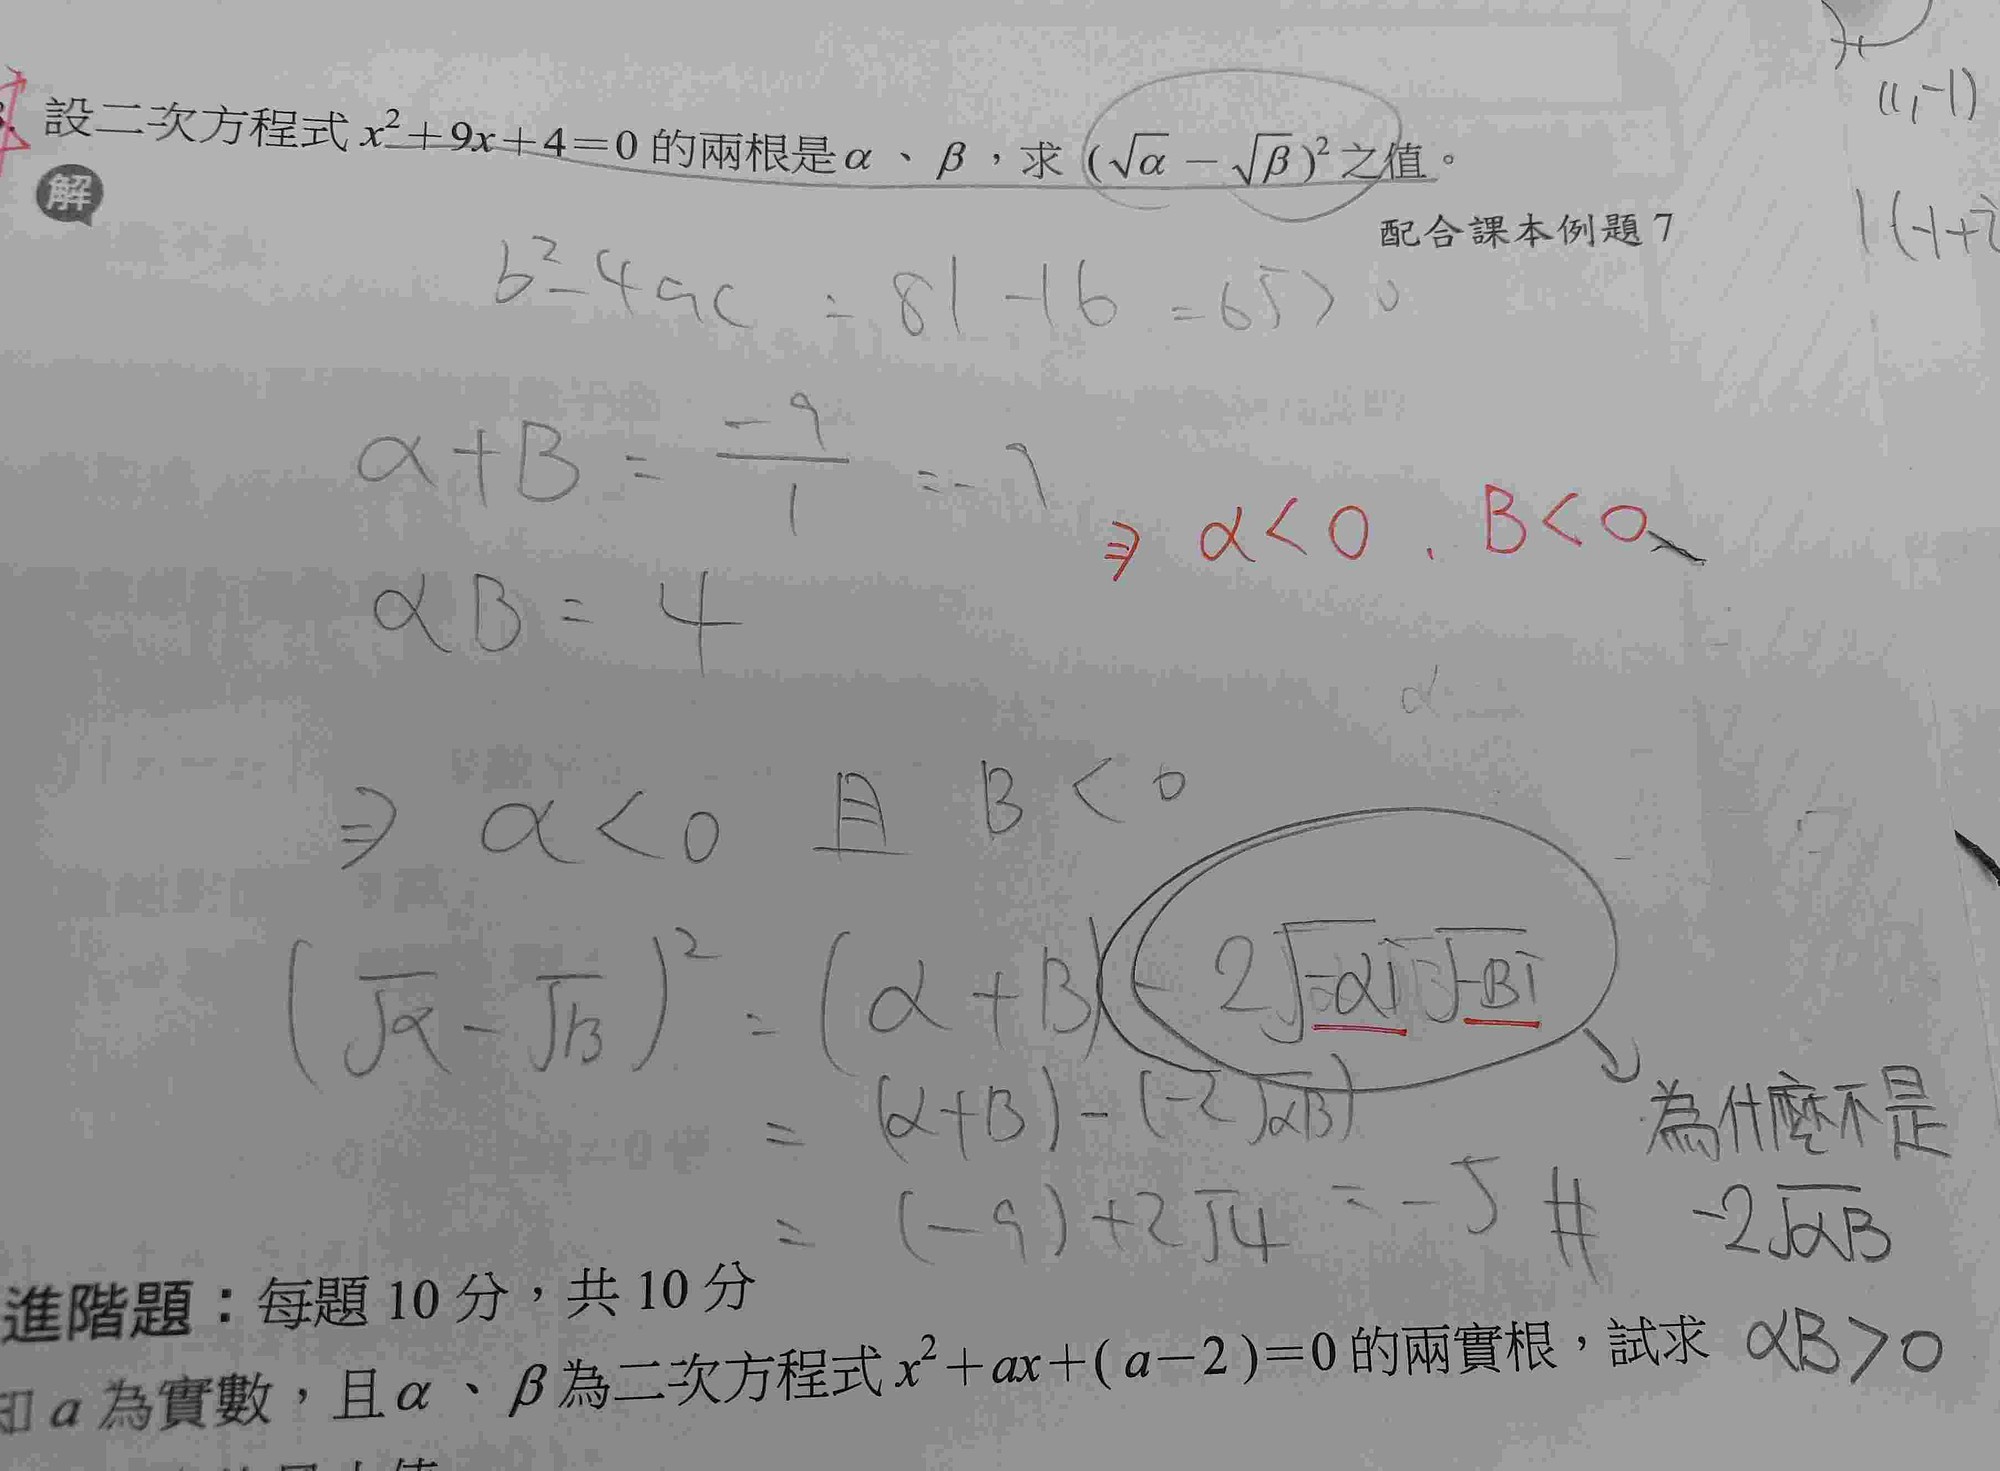 設二次方程式 x²+9x+4=0 的兩根是α、β，求 (√α − √β)² 之值。
解
配合課本例題 7
(1,-1)
1(-1+i
b²-4ac = 81-16 = 65>0
α+B = -9/1 = -9
⇒ α<0 . B<0
αB = 4
α
⇒ α<0 且 B<0
(√α - √B)² = (α+B) - 2√-αi √-Bi
= (α+B) - (-2√αB)
= (-9)+2√4 = -5 #
為什麼不是
-2√αB
αB>0
進階題：每題 10 分，共 10 分
a 為實數，且α、β為二次方程式 x²+ax+(a−2)=0 的兩實根，試求